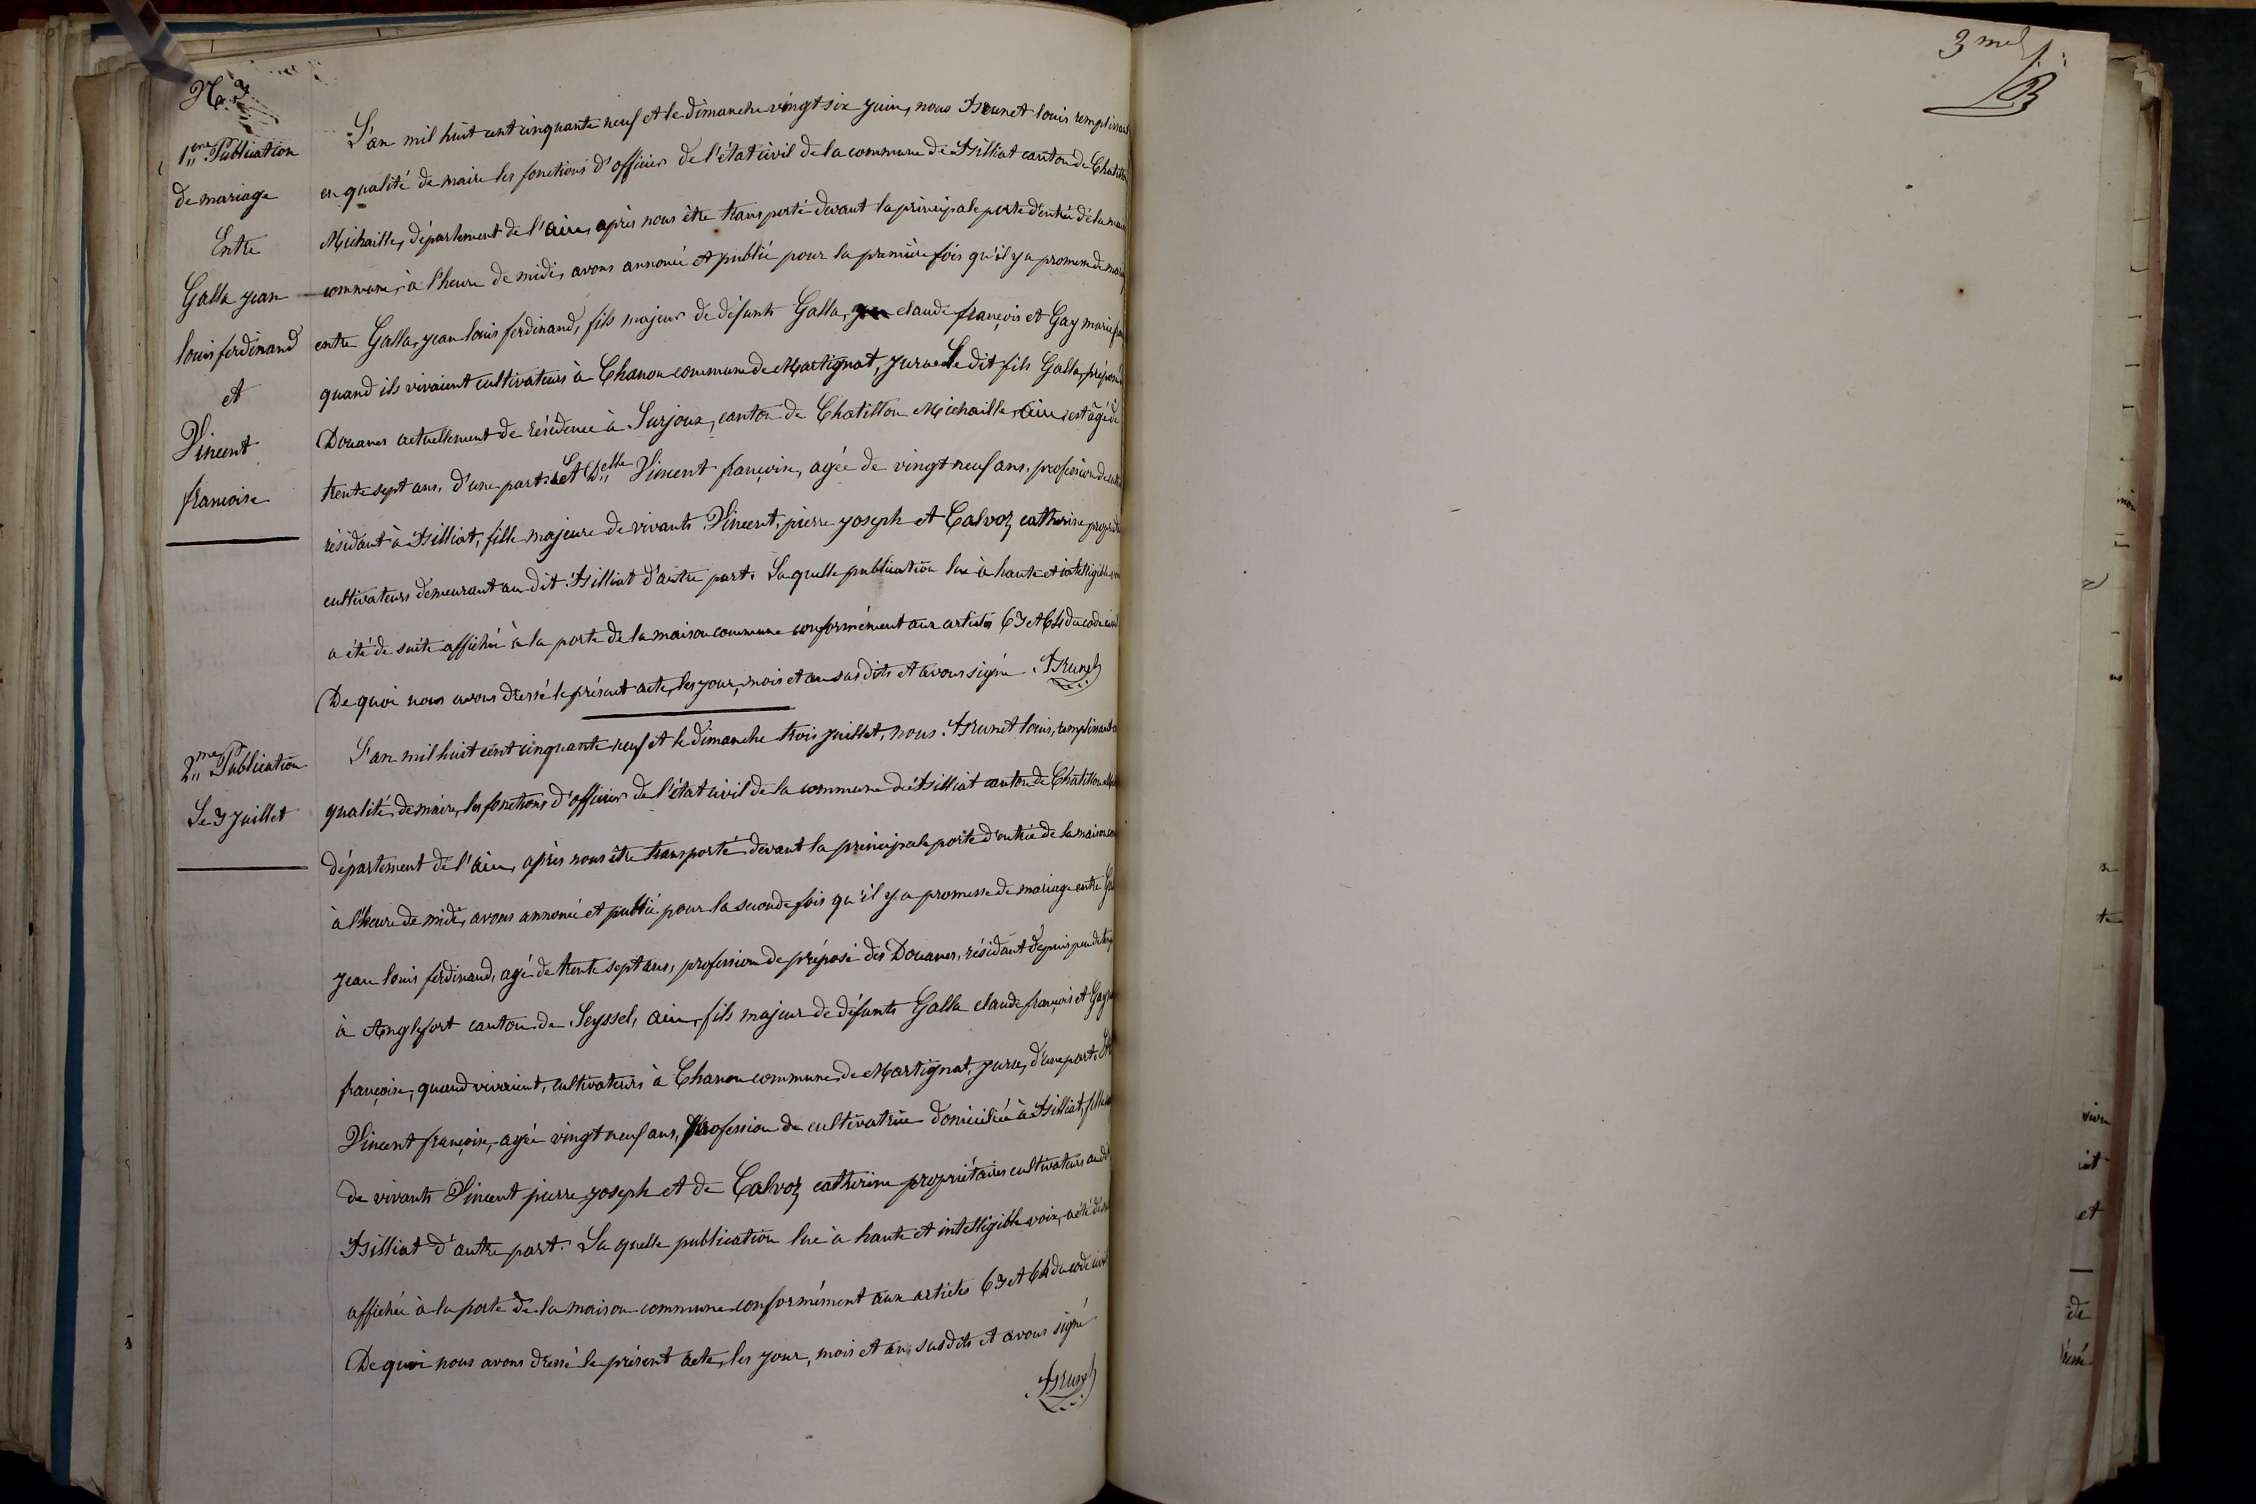 No 3
1ere Publication
de mariage
Entre
Galla jean
louis ferdinand
et
Vincent
francoise
L'an mil huit cent cinquante neuf et le dimanche vingt six juin, nous Brunet louis remplissant
en qualité de maire les fonctions d'officier de l'état civil de la commune de Billiat canton de Chatillon
Michaille, département de l'ain, après nous être transporté devant la principale porte d'entrée de la maison
commune, à l'heure de midi, avons annoncé et publié pour la première fois qu'il y a promesse de mariage
entre Galla, jean louis ferdinand, fils majeur de défunts Galla, claude françois et Gay marie
quand ils vivaient cultivateurs à Chanon commune de Martignat, jura Le dit fils Galla, préposé
Douanes actuellement de résidence à Surjoux, canton de Chatillon Michaille, ain, est âgé de
trente sept ans, d'une part. Et Delle Vincent françoise, agée de vingt neuf ans, profession de
résidant à Billiat, fille majeure de vivants Vincent, pierre joseph et Calvoz catherine
cultivateurs demeurant au dit Billiat d'autre part. La quelle publication lue à haute et intelligible voix
a été de suite affichée à la porte de la maison commune conformément aux articles 63 et 64 du code civil
De quoi nous avons dressé le présent acte, les jour, mois et an susdits et avons signé Brunet
2me Publication
Le 3 juillet
L'an mil huit cent cinquante neuf et le dimanche trois juillet, nous Brunet louis, remplissant en
qualité de maire, les fonctions d'officier de l'état civil de la commune de Billiat canton de Chatillon
département de l'ain, après nous être transporté devant la principale porte d'entrée de la maison
à l'heure de midi, avons annoncé et publié pour la seconde fois qu'il y a promesse de mariage entre
jean louis ferdinand, agé de trente sept ans, profession de préposé des Douanes, résidant depuis peu de temps
à Anglefort canton de Seyssel, ain, fils majeur de défunts Galla claude françois et Gay
françoise, quand vivaient, cultivateurs à Chanon commune de Martignat, jura, d'une part. Et
Vincent françoise, agée vingt neuf ans, profession de cultivatrice domiciliée à Billiat, fille
de vivants Vincent pierre joseph et de Calvoz catherine propriétaires cultivateurs au dit
Billiat d'autre part. La quelle publication lue à haute et intelligible voix, a été de suite
affichée à la porte de la maison commune conformément aux articles 63 et 64 du code civil
De quoi nous avons dressé le présent acte, les jour, mois et an susdits et avons signé
Brunet